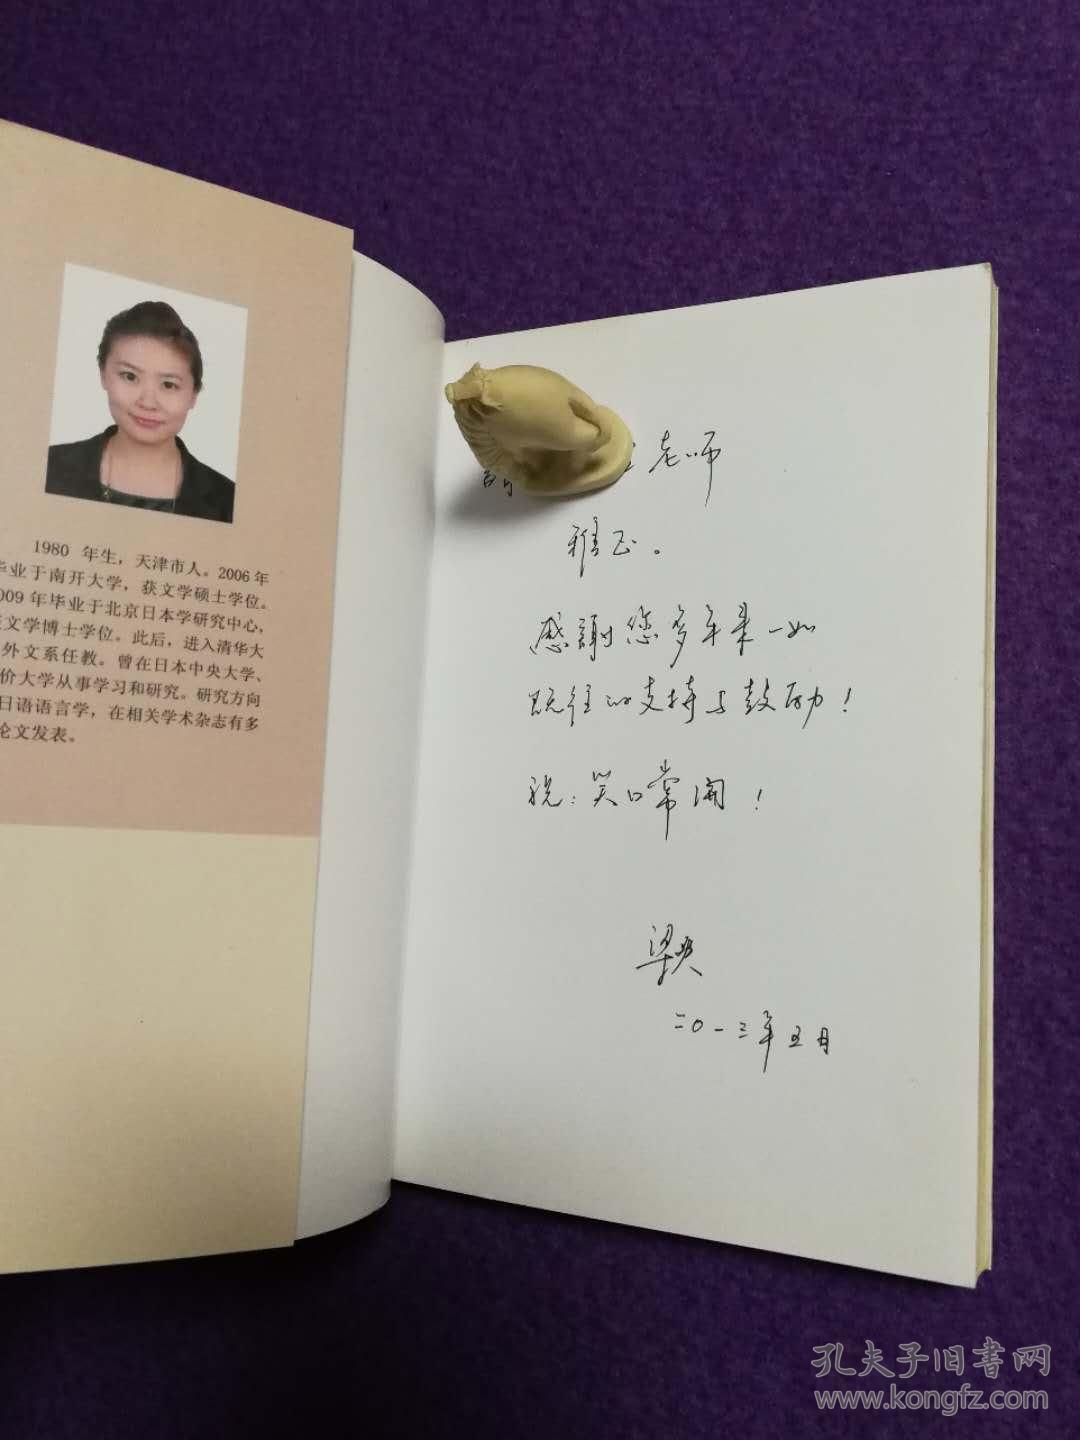 1980 年生，天津市人。2006年
毕业于南开大学，获文学硕士学位。
009年毕业于北京日本学研究中心，
文学博士学位。此后，进入清华大
外文系任教。曾在日本中央大学、
价大学从事学习和研究。研究方向
日语语言学，在相关学术杂志有多
论文发表。
老师
雅正。
感謝您多年来一如
既往的支持与鼓励！
祝：笑口常開！
二〇一三年五月
孔夫子旧書网
www.kongfz.com